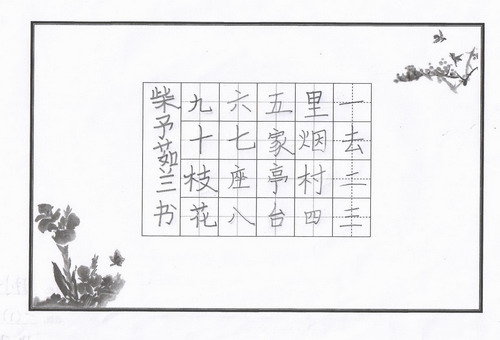 一去二三
里烟村四
五家亭台
六七座八
九十枝花
柴予茹兰书